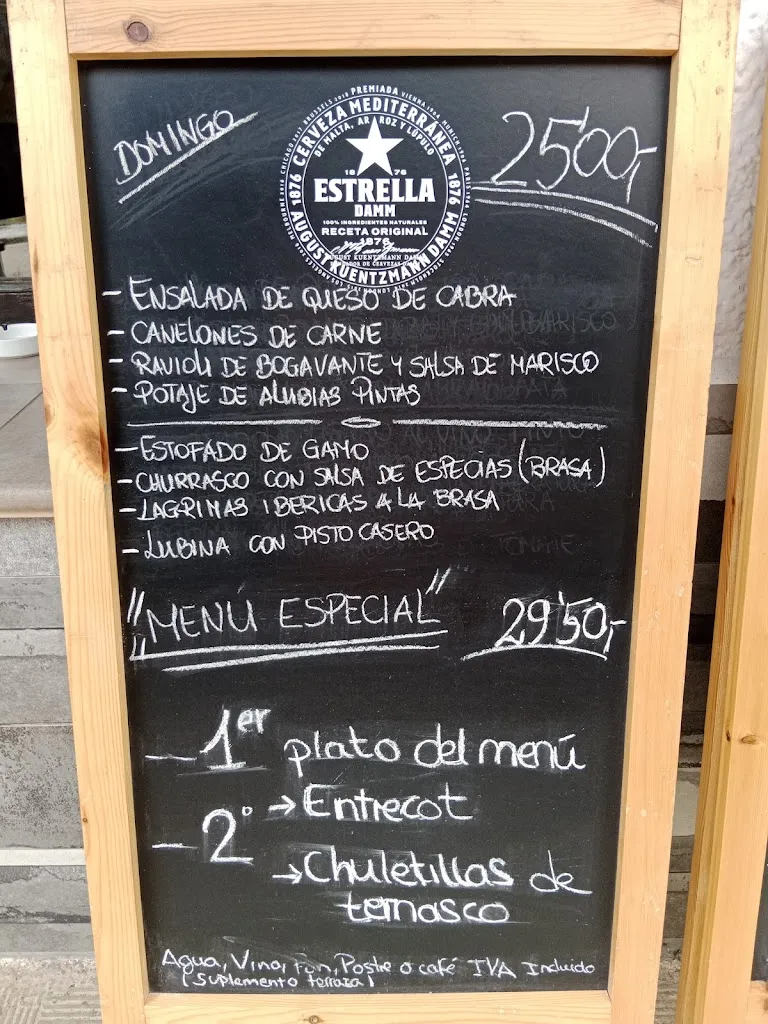 DOMINGO
25'00,-
PREMIADA
CERVEZA MEDITERRÁNEA
DE MALTA, ARROZ Y LÚPULO
1876
1876
1876
ESTRELLA
DAMM
100% INGREDIENTES NATURALES
RECETA ORIGINAL
1876
AUGUST KUENTZMANN DAMM
- ENSALADA DE QUESO DE CABRA
- CANELONES DE CARNE
- RAVIOLI DE BOGAVANTE Y SALSA DE MARISCO
- POTAJE DE ALUBIAS PINTAS
- ESTOFADO DE GAMO
- CHURRASCO CON SALSA DE ESPECIAS (BRASA)
- LAGRIMAS IBERICAS A LA BRASA
- LUBINA CON PISTO CASERO
"MENÚ ESPECIAL" 29'50,-
- 1er plato del menú
- 2º → Entrecot
→ Chuletillas de
ternasco
Agua, Vino, Postre o café IVA Incluido
(Suplemento terraza)